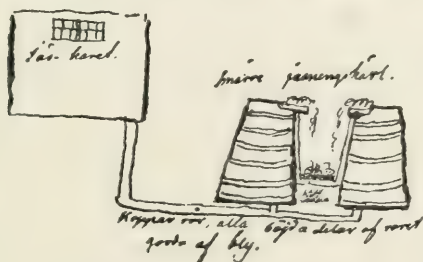 Jäs-karet.
Smärre jäsningskärl.
Koppar rör, alla böjda delar af röret
gjorda af bly.